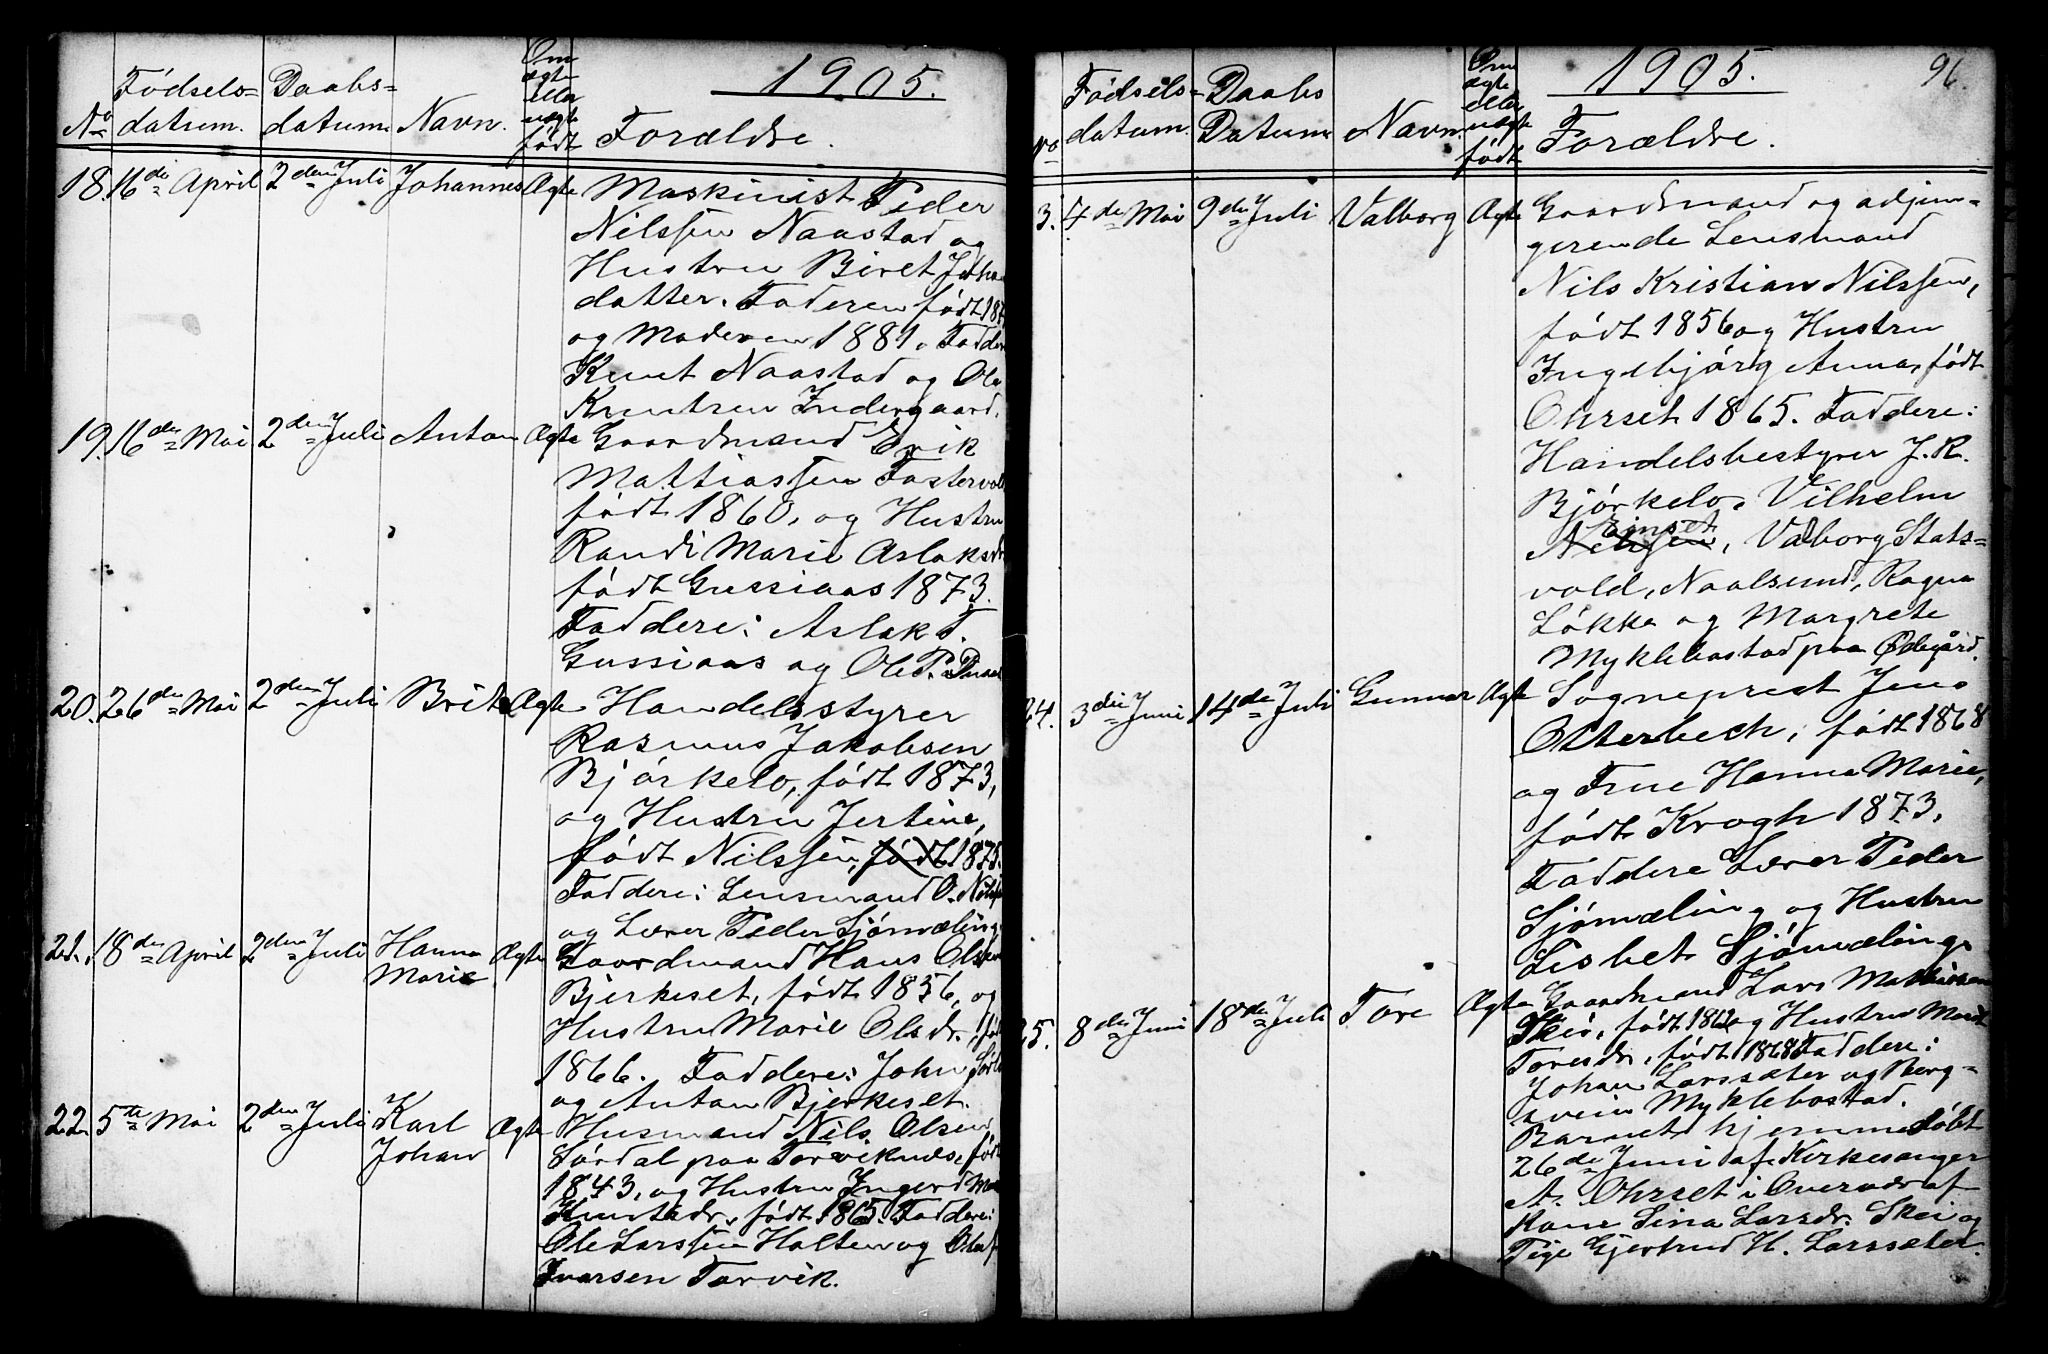 1905.
No
Fødsels=
datum.
Daabs=
datum
Navn.
Om
ægte
eller
uægte
født
Forældre.
18. 16de April 2den Juli Johannes Ægte Maskinist Peder
Nilssen Naastad og
Hustru Beret Joha
datter. Faderen født 187
og Moderen 1881. Fadder
Knut Naastad og Ola
Knutsen Indergaard.
19. 16de Mai 2den Juli Anton Ægte Gaardmand Erik
Mattiassen Fostervol
født 1860, og Hustru
Randi Marie Aslaksdr
født Gussiaas 1873.
Faddere: Aslak T.
Gussiaas og Ole P.
20. 26de Mai 2den Juli Brit Ægte Handelsstyrer
Rasmus Jakobsen
Bjørkelo, født 1873,
og Hustru Jertine,
født Nilssen, født 1875.
Faddere: Lensmand O. Nilss
og Lærer Peder Sjømæling
21. 18de April 2den Juli Hanna Marie Ægte Gaardmand Hans Olsen
Bjerkeset, født 1856, og
Hustru Marie Olsdr., fød
1866. Faddere: John
og Anton Bjerkeset.
22. 5te Mai 2den Juli Karl Johan Ægte Husmand Nils Olsen
Sørdal paa Torviknes, født
1843, og Hustru Ingerd Ma
Knutsdr, født 1865. Faddere:
Ole Larssen Holten og Olaf
Ivarsen Torvik.
96.
1905.
No
Fødsels=
datum.
Daabs
Datum
Navn.
Om
ægte
eller
uægte
født
Forældre.
3. 4de Mai 9de Juli Valborg Ægte Gaardmand og adjun=
gerende Lensmand
Nils Kristian Nilssen,
født 1856 og Hustru
Ingebjørg Anna, født
Ohrset 1865. Faddere:
Handelsbestyrer J. R.
Bjørkelo, Vilhelm
Einset
Nilssen, Valborg Stats=
vold, Naalsund, Ragna
Løkke og Margrete
Myklebostad paa Ødegård.
24. 3die Juni 14de Juli Gunnar Ægte Sogneprest Jens
Otterbech, født 1868
og Frue Hanna Marie,
født Krogh 1873.
Faddere Lærer Peder
Sjømæling og Hustru
Lisbet Sjømæling.
25. 8de Juni 18de Juli Tore Ægte Gaardmand Lars Mathiesen
Skei, født 1862 og Hustru Marit
Toresdr, født 1868. Faddere:
Johan Larssæter og Berg=
svein Myklebostad.
Barnet hjemmedøbt
26de Juni af Kirkesanger
A. Ohrset i Overvær af
Kone Sina Larsdr. Skei og
Pige Gjertrud H. Larssæter.